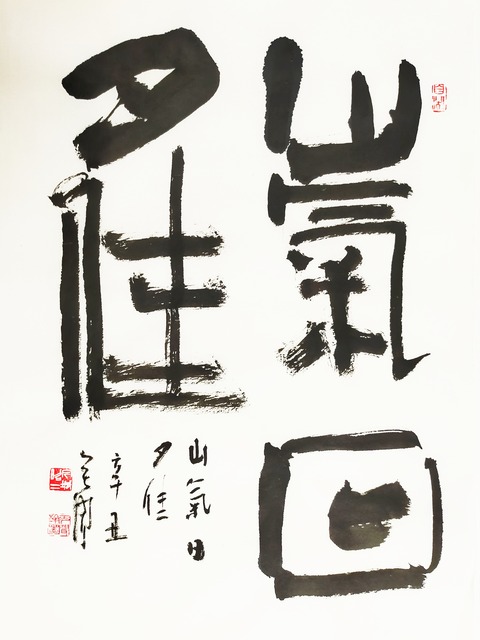 山氣日
夕佳
山氣日
夕佳
辛丑